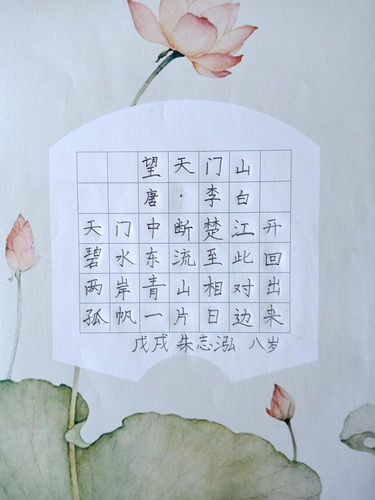 望天门山
唐·李白
天门中断楚江开
碧水东流至此回
两岸青山相对出
孤帆一片日边来
戊戌 朱志泓 八岁